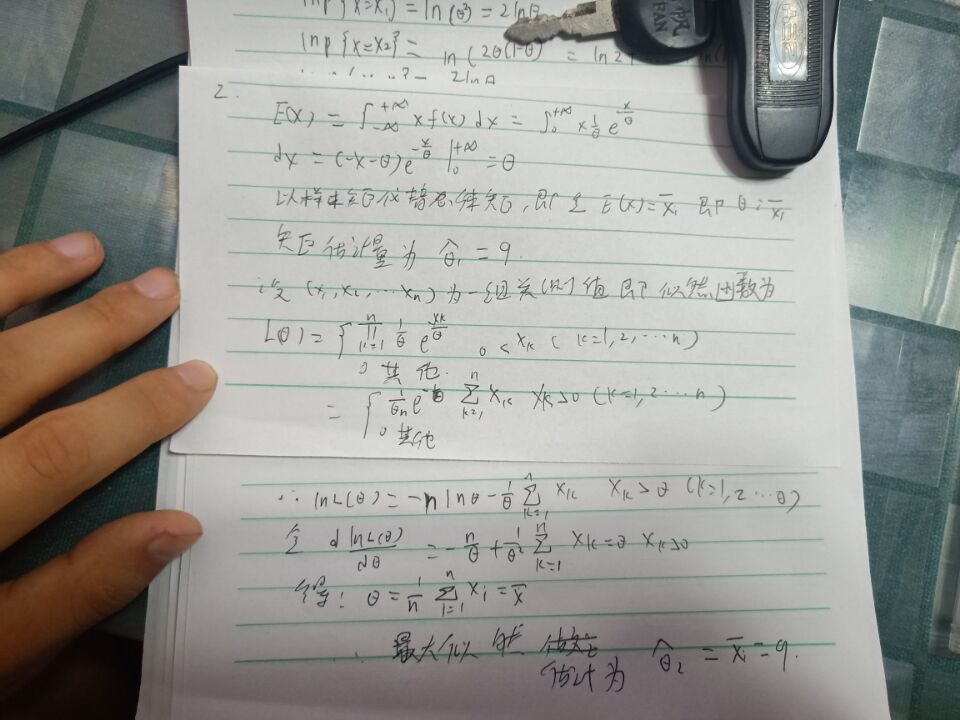 lnp{x=x₁}=ln(θ²)=2lnθ
lnp{x=x₂}= ln(2θ(1-θ) = ln2+
2lnθ
2.
E(x) = ∫_{-∞}^{+∞} xf(x)dx = ∫_0^{+∞} x 1/θ e^{-x/θ}
dx = (-x-θ)e^{-x/θ} |_0^{+∞} = θ
以样本矩 替总体矩,即 E(x)=x̄₁ 即 θ=x̄₁
矩估计量为 θ̂₁ = 9.
设(x₁,x₂,…xₙ)为一组 值 即似然函数为
L(θ) = { ∏_{k=1}^{n} 1/θ e^{xk/θ} 0<xₖ ( k=1,2,…n)
0 其他.
= { 1/θn e^{-} ∑_{k=1}^{n} xₖ xₖ>0 (k=1,2…n)
0 其他
∴ lnL(θ) = -n lnθ - 1/θ ∑_{k=1}^{n} xₖ xₖ>θ (k=1,2…θ)
令 d lnL(θ)/dθ = -n/θ + 1/θ² ∑_{k=1}^{n} xₖ=θ xₖ>0
得: θ = 1/n ∑_{i=1}^{n} xᵢ = x̄
最大似然
估计为 θ̂₂ = x̄ᵢ = 9.